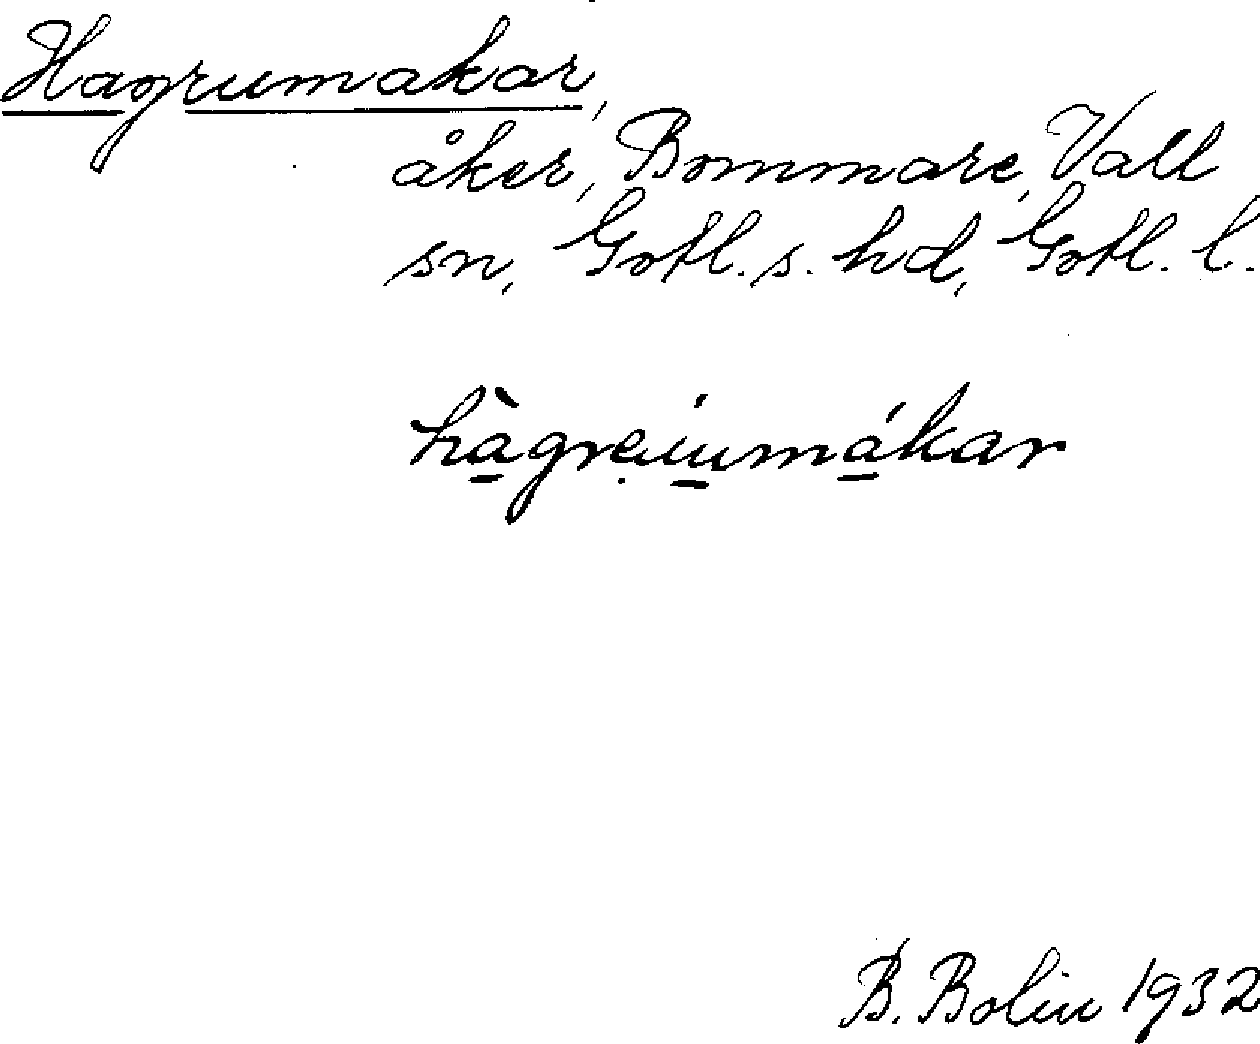 Hagrumakar,
åker, Bommare, Vall
sn, Gotl. s. hd, Gotl. l.
hàgrẹiumákar
B. Bolin 1932